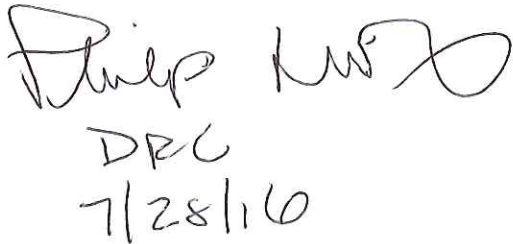 Philip
DRC
7/28/16